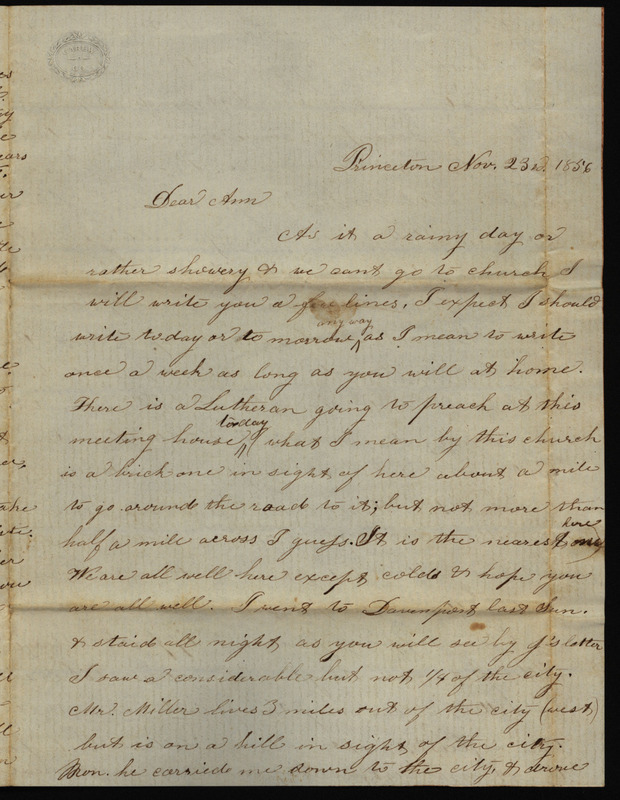 Princeton Nov. 23rd. 1856
Dear Ann
As it a rainy day or
rather showery & we cant go to church I
will write you a few lines. I expect I should
any way
write to day or to morrow, as I mean to write
once a week as long as you will at home.
There is a Lutheran going to preach at this
to day
meeting house, what I mean by this church
is a brick one in sight of here about a mile
to go around the road to it; but not more than
half a mile across I guess. It is the nearest
here
We are all well here except colds & hope you
are all well. I went to Davenport last Sun.
& staid all night as you will see by J's letter
I saw a considerable but not 1/4 of the city.
Mr. Miller lives 3 miles out of the city (west)
but is on a hill in sight of the city.
Mon. he carried me down to the city, & drove